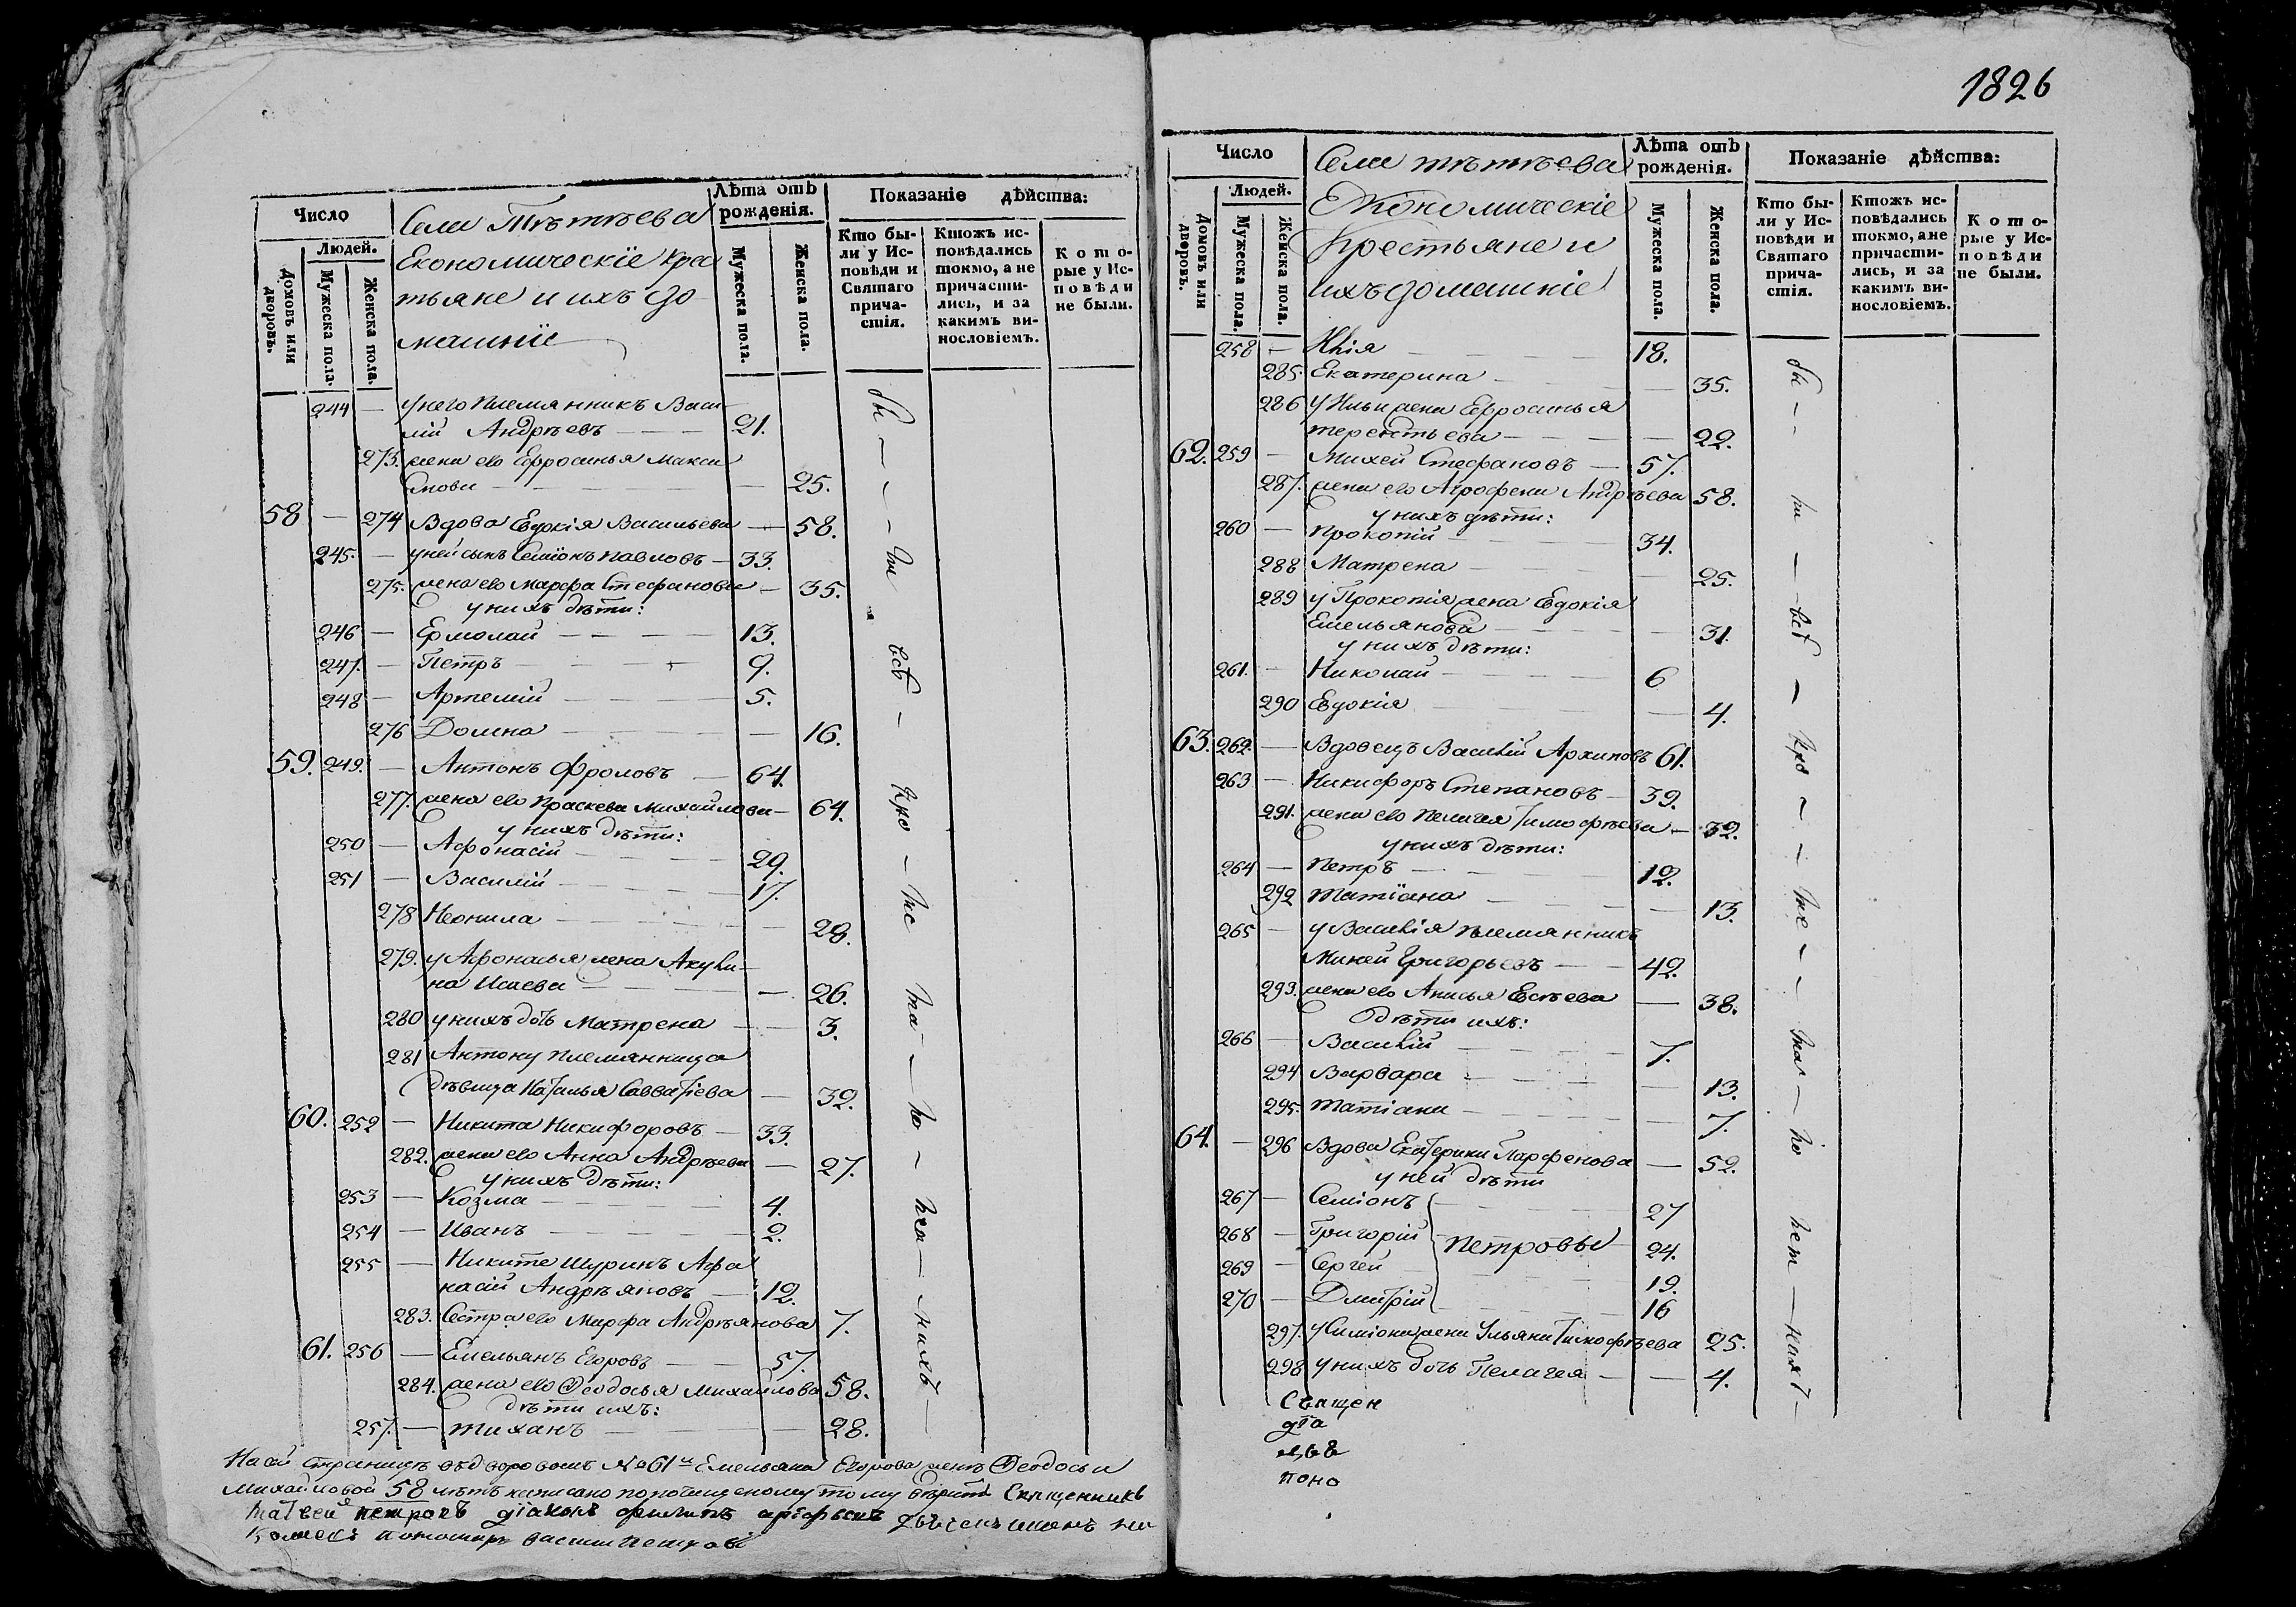 Число
Людей.
Домовъ или дворовъ.
Мужеска пола.
Женска пола.
Села Тѣтѣева
Економическїе кра
тьяне и ихъ до
машнїе
Лѣта отъ рожденія.
Мужеска пола.
Женска пола.
Показаніе дѣйства:
Кто бы-
ли у Ис-
повѣди и
Святаго
прича-
стія.
Ктожъ ис-
повѣдались
токмо, а не
причасти-
лись, и за
какимъ ви-
нословіемъ.
К о т о-
рые у Ис-
п о в ѣ д и
не были.
244 — у него племянникъ Васи
лій Андрѣевъ — 21.
273. жена его Ефросинья Макси
мова — 25.
58 — 274 Вдова Евдокія Васильева — 58.
245. — у ней сынъ Семіонъ Павловъ — 33.
275. жена его Марфа Стефанова — 35.
у нихъ дѣти:
246 — Ермолай — 13.
247. — Петръ — 9.
248 — Артемій — 5.
276 Домна — 16.
59. 249. — Антонъ Фроловъ — 64.
277. жена его Праскева Михайлова — 64.
у нихъ дѣти:
250 — Афонасій — 29.
251 — Василій — 17.
278 Неонила — 28.
279. у Афонасья жена Акули-
на Исаева — 26.
280 у нихъ дочь Матрена — 3.
281 Антону племянница
дѣвица Наталья Савватіева — 32.
60. 252 — Никита Никифоровъ — 33.
282. жена его Анна Андрѣева — 27.
у нихъ дѣти:
253 — Козма — 4.
254 — Иванъ — 2.
255 — Никите шуринъ Афа
насій Андрѣяновъ — 12.
283. Сестра его Марфа Андрѣянова 7.
61. 256 — Емельянъ Егоровъ — 57.
284. жена его Ѳеодосья Михайлова 58.
дѣти ихъ:
257. — тиханъ — 28.
На сей страницѣ въ дворовомъ № 61й Емельяна Егорова женѣ Ѳеодосьи
Михайловой 58 лѣтъ написано по почищеному тому вѣрить Священникъ
петровъ діаконъ филипъ
1826
Число
Людей.
Домовъ или дворовъ.
Мужеска пола.
Женска пола.
Села тѣтѣева
Економическіе
Крестьяне и
ихъ домашніе
Лѣта отъ рожденія.
Мужеска пола.
Женска пола.
Показаніе дѣйства:
Кто бы-
ли у Ис-
повѣди и
Святаго
прича-
стія.
Ктожъ ис-
повѣдались
токмо, а не
причасти-
лись, и за
какимъ ви-
нословіемъ.
К о т о-
рые у Ис-
п о в ѣ д и
не были.
258 — Илія — 18.
285. Екатерина — 35.
286 у Ильи жена Ефросинья
терентьева — 22.
62. 259 — Михей Стефановъ — 57.
287. жена его Агрофена Андрѣева 58.
у нихъ дѣти:
260 — Прокопій — 34.
288 Матрена — 25.
289 у Прокопія жена Евдокія
Емельянова — 31.
у нихъ дѣти:
261. — Николай — 6
290 Евдокія — 4.
63. 262. — Вдовецъ Василій Архиповъ 61.
263 — Никифоръ Степановъ — 39.
291. жена его Пелагея Тимофѣева — 32.
у нихъ дѣти:
264 — Петръ — 12.
292 Татїана — 13.
265 — у Василія племянникъ
Миней Григорьевъ — 42.
293. жена его Анисья Евсѣева — 38.
дѣти ихъ:
266 — Василій — 7.
294. Варвара — 13.
295. Татіана — 7.
64. — 296 Вдова Екатерина Парфенова — 52.
у ней дѣти
267 — Семіонъ — 27
268 — Григорій — 24.
Петровы
269 — Сергей — 19.
270 — Дмитрій — 16
297. у Симіона жена Ульяна Тимофѣева 25.
298 у нихъ дочь Пелагея — 4.
Священ
діа
поно